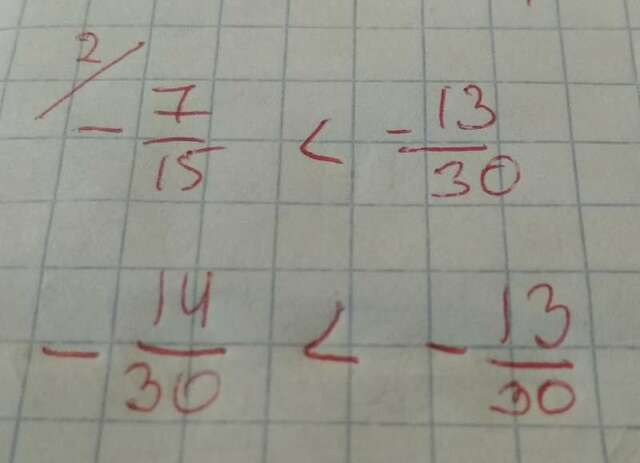 2/
- 7/15 < -13/30
- 14/30 < - 13/30